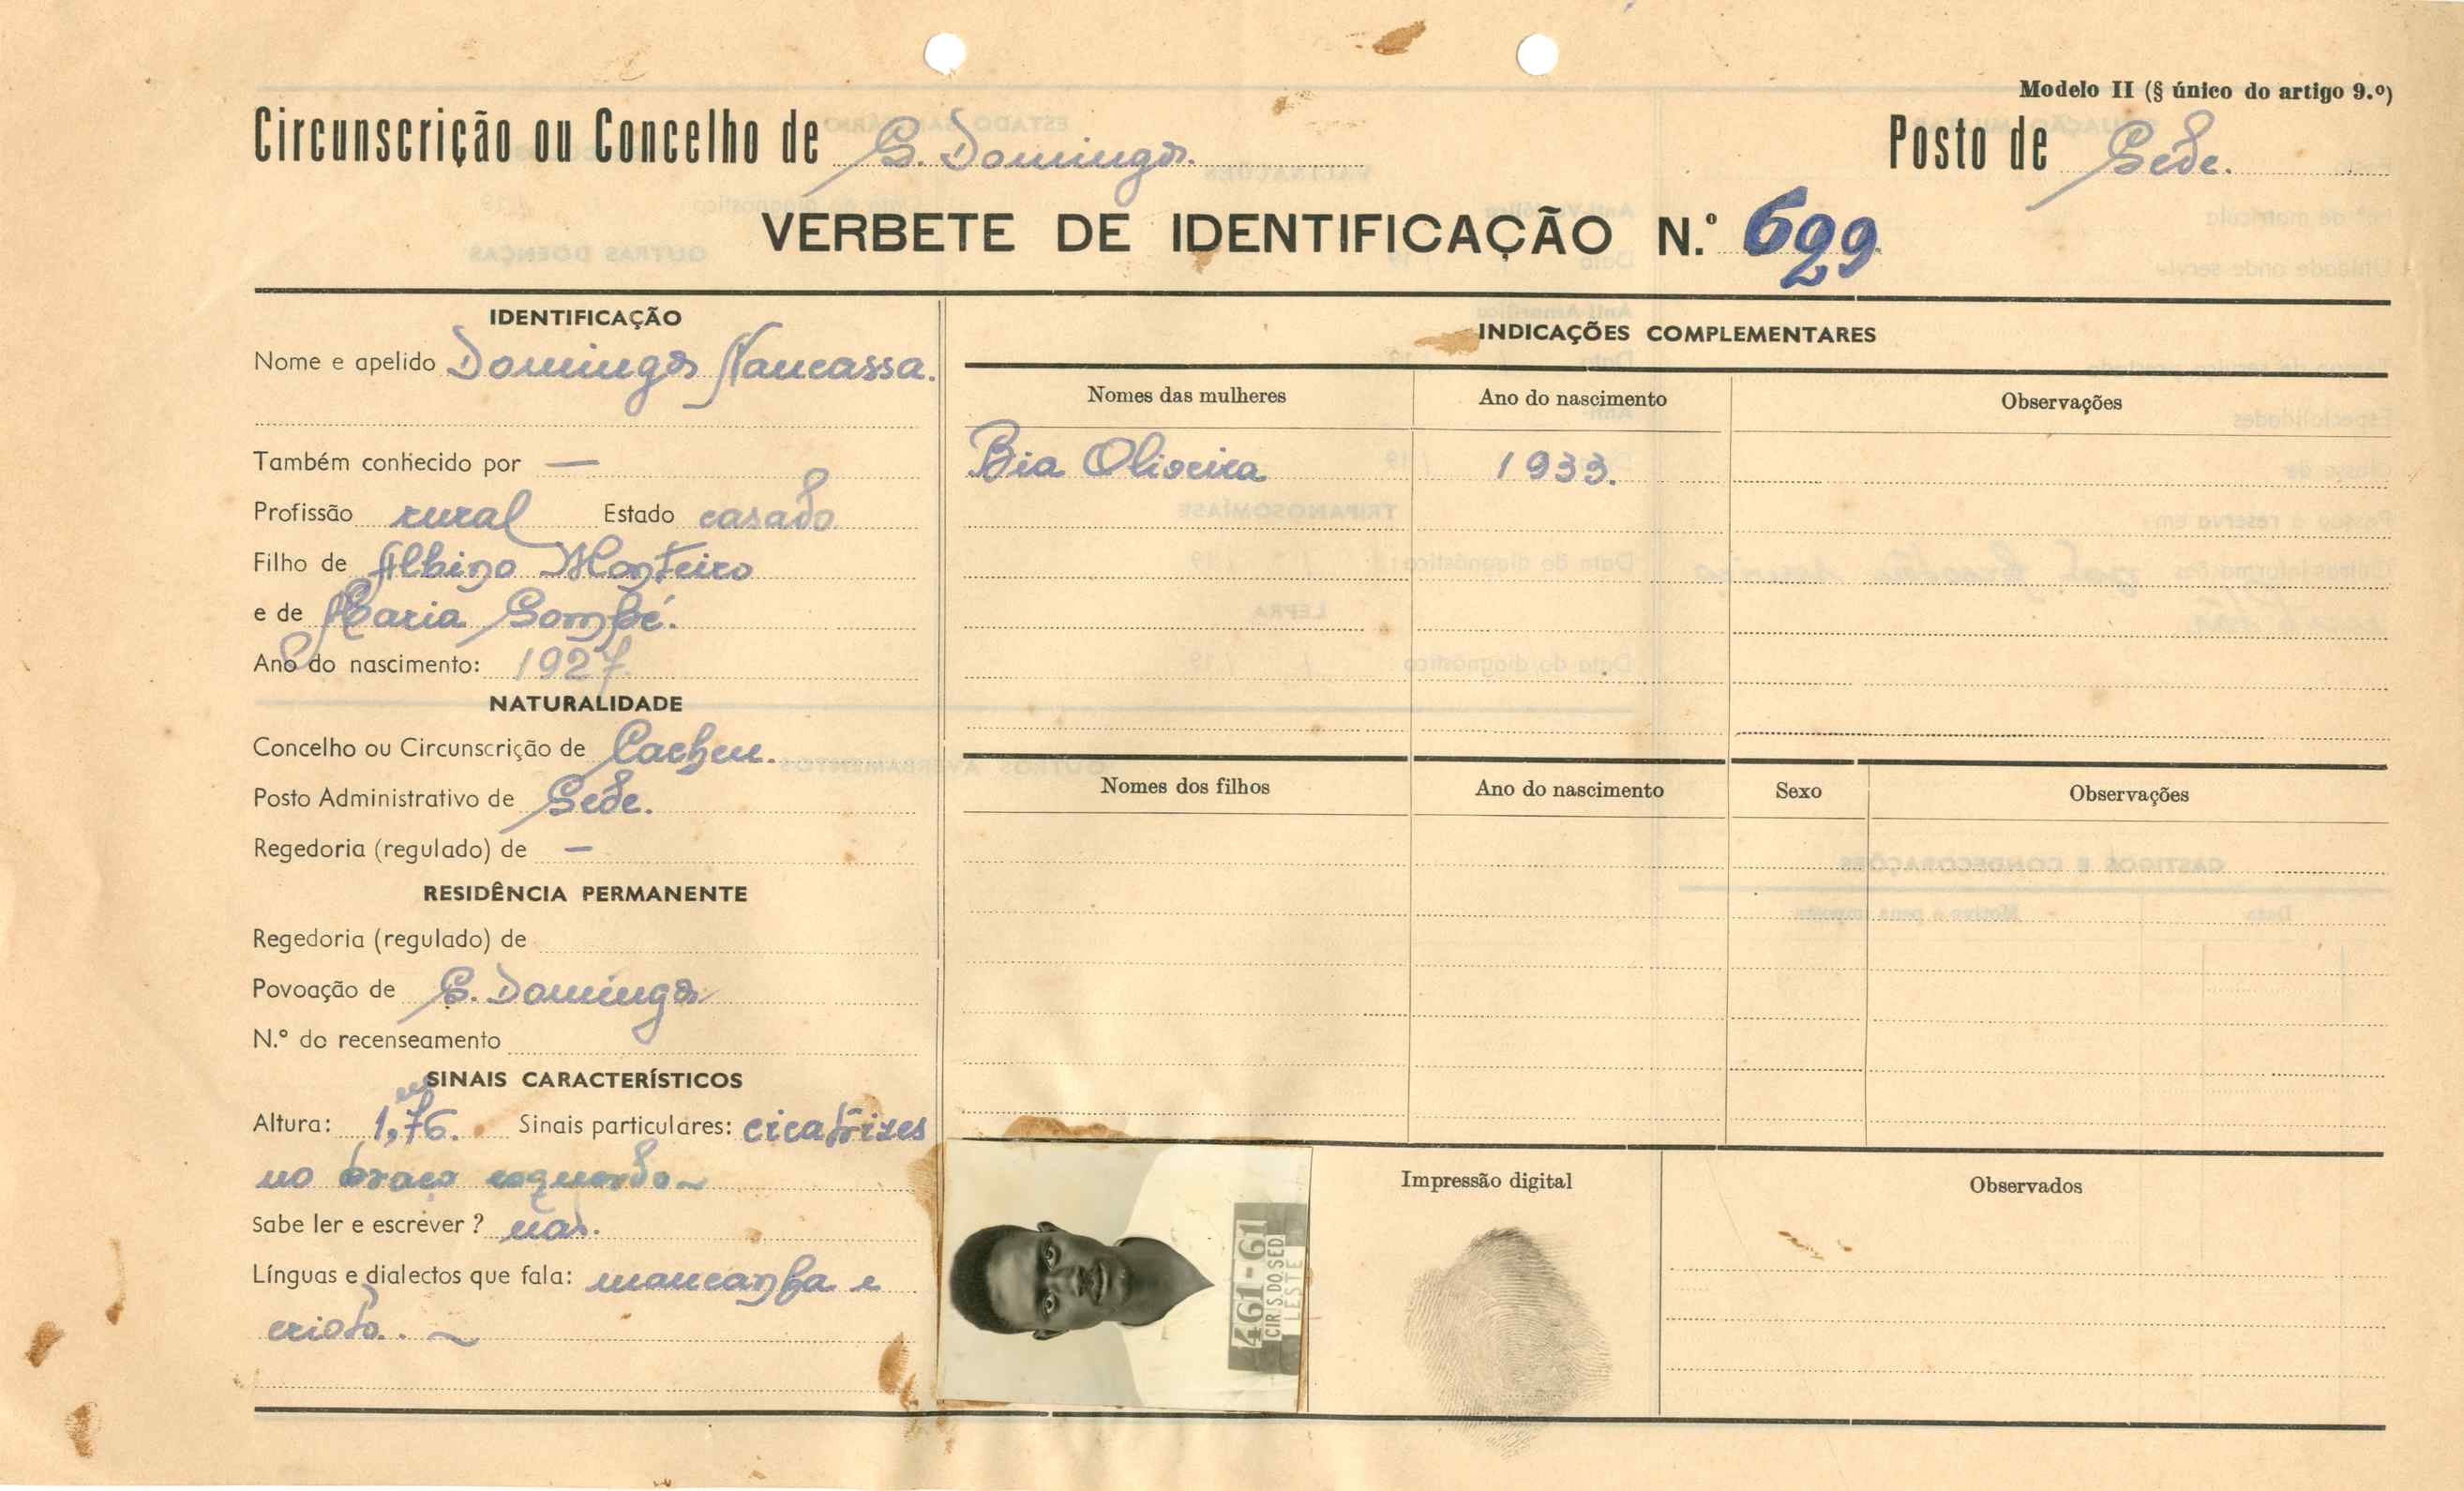 Modelo II (§ único do artigo 9.º)
Circunscrição ou Concelho de S. Domingos. Posto de Sede.
VERBETE DE IDENTIFICAÇÃO N.º 699
IDENTIFICAÇÃO
Nome e apelido Domingos Nancassa.
Também conhecido por —
Profissão rural Estado casado
Filho de Albino Monteiro
e de Maria Gombé.
Ano do nascimento: 1927.
NATURALIDADE
Concelho ou Circunscrição de Cacheu.
Posto Administrativo de Sede.
Regedoria (regulado) de —
RESIDÊNCIA PERMANENTE
Regedoria (regulado) de
Povoação de S. Domingos
N.º do recenseamento
SINAIS CARACTERÍSTICOS
Altura: 1,m76. Sinais particulares: cicatrizes
no braço esquerdo ~
Sabe ler e escrever? não.
Línguas e dialectos que fala: mancanha e
crioto. ~
INDICAÇÕES COMPLEMENTARES
Nomes das mulheres Ano do nascimento Observações
Bia Oliveira 1933.
Nomes dos filhos Ano do nascimento Sexo Observações
461-61
CIR S.DO SED
LESTE
Impressão digital
Observados